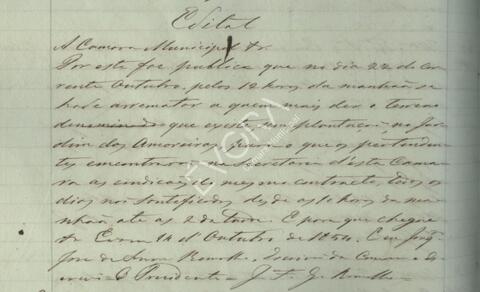 Edital
A Camara Municipal &r.
Por este faz publico que no dia 22 do cor
rente Outubro, pelas 12 horas da manhãa se
ha de arrematar a quem mais der o terreno
que existe sem plantação no Jar
dim das Amoreiras, para o que os pertenden
tes encontrarão na Secretaria d'esta Cama
ra as condições do mesmo contracto, todos os
dias não santificados, desde as 10 horas da ma
nhãa até as 2 da tarde. E para que chegue
&r. Evora 14 d'Outubro de 1854. Eu
José de Escrivão da Camara o es
crevi O Presidente J. F. G.
EVORA